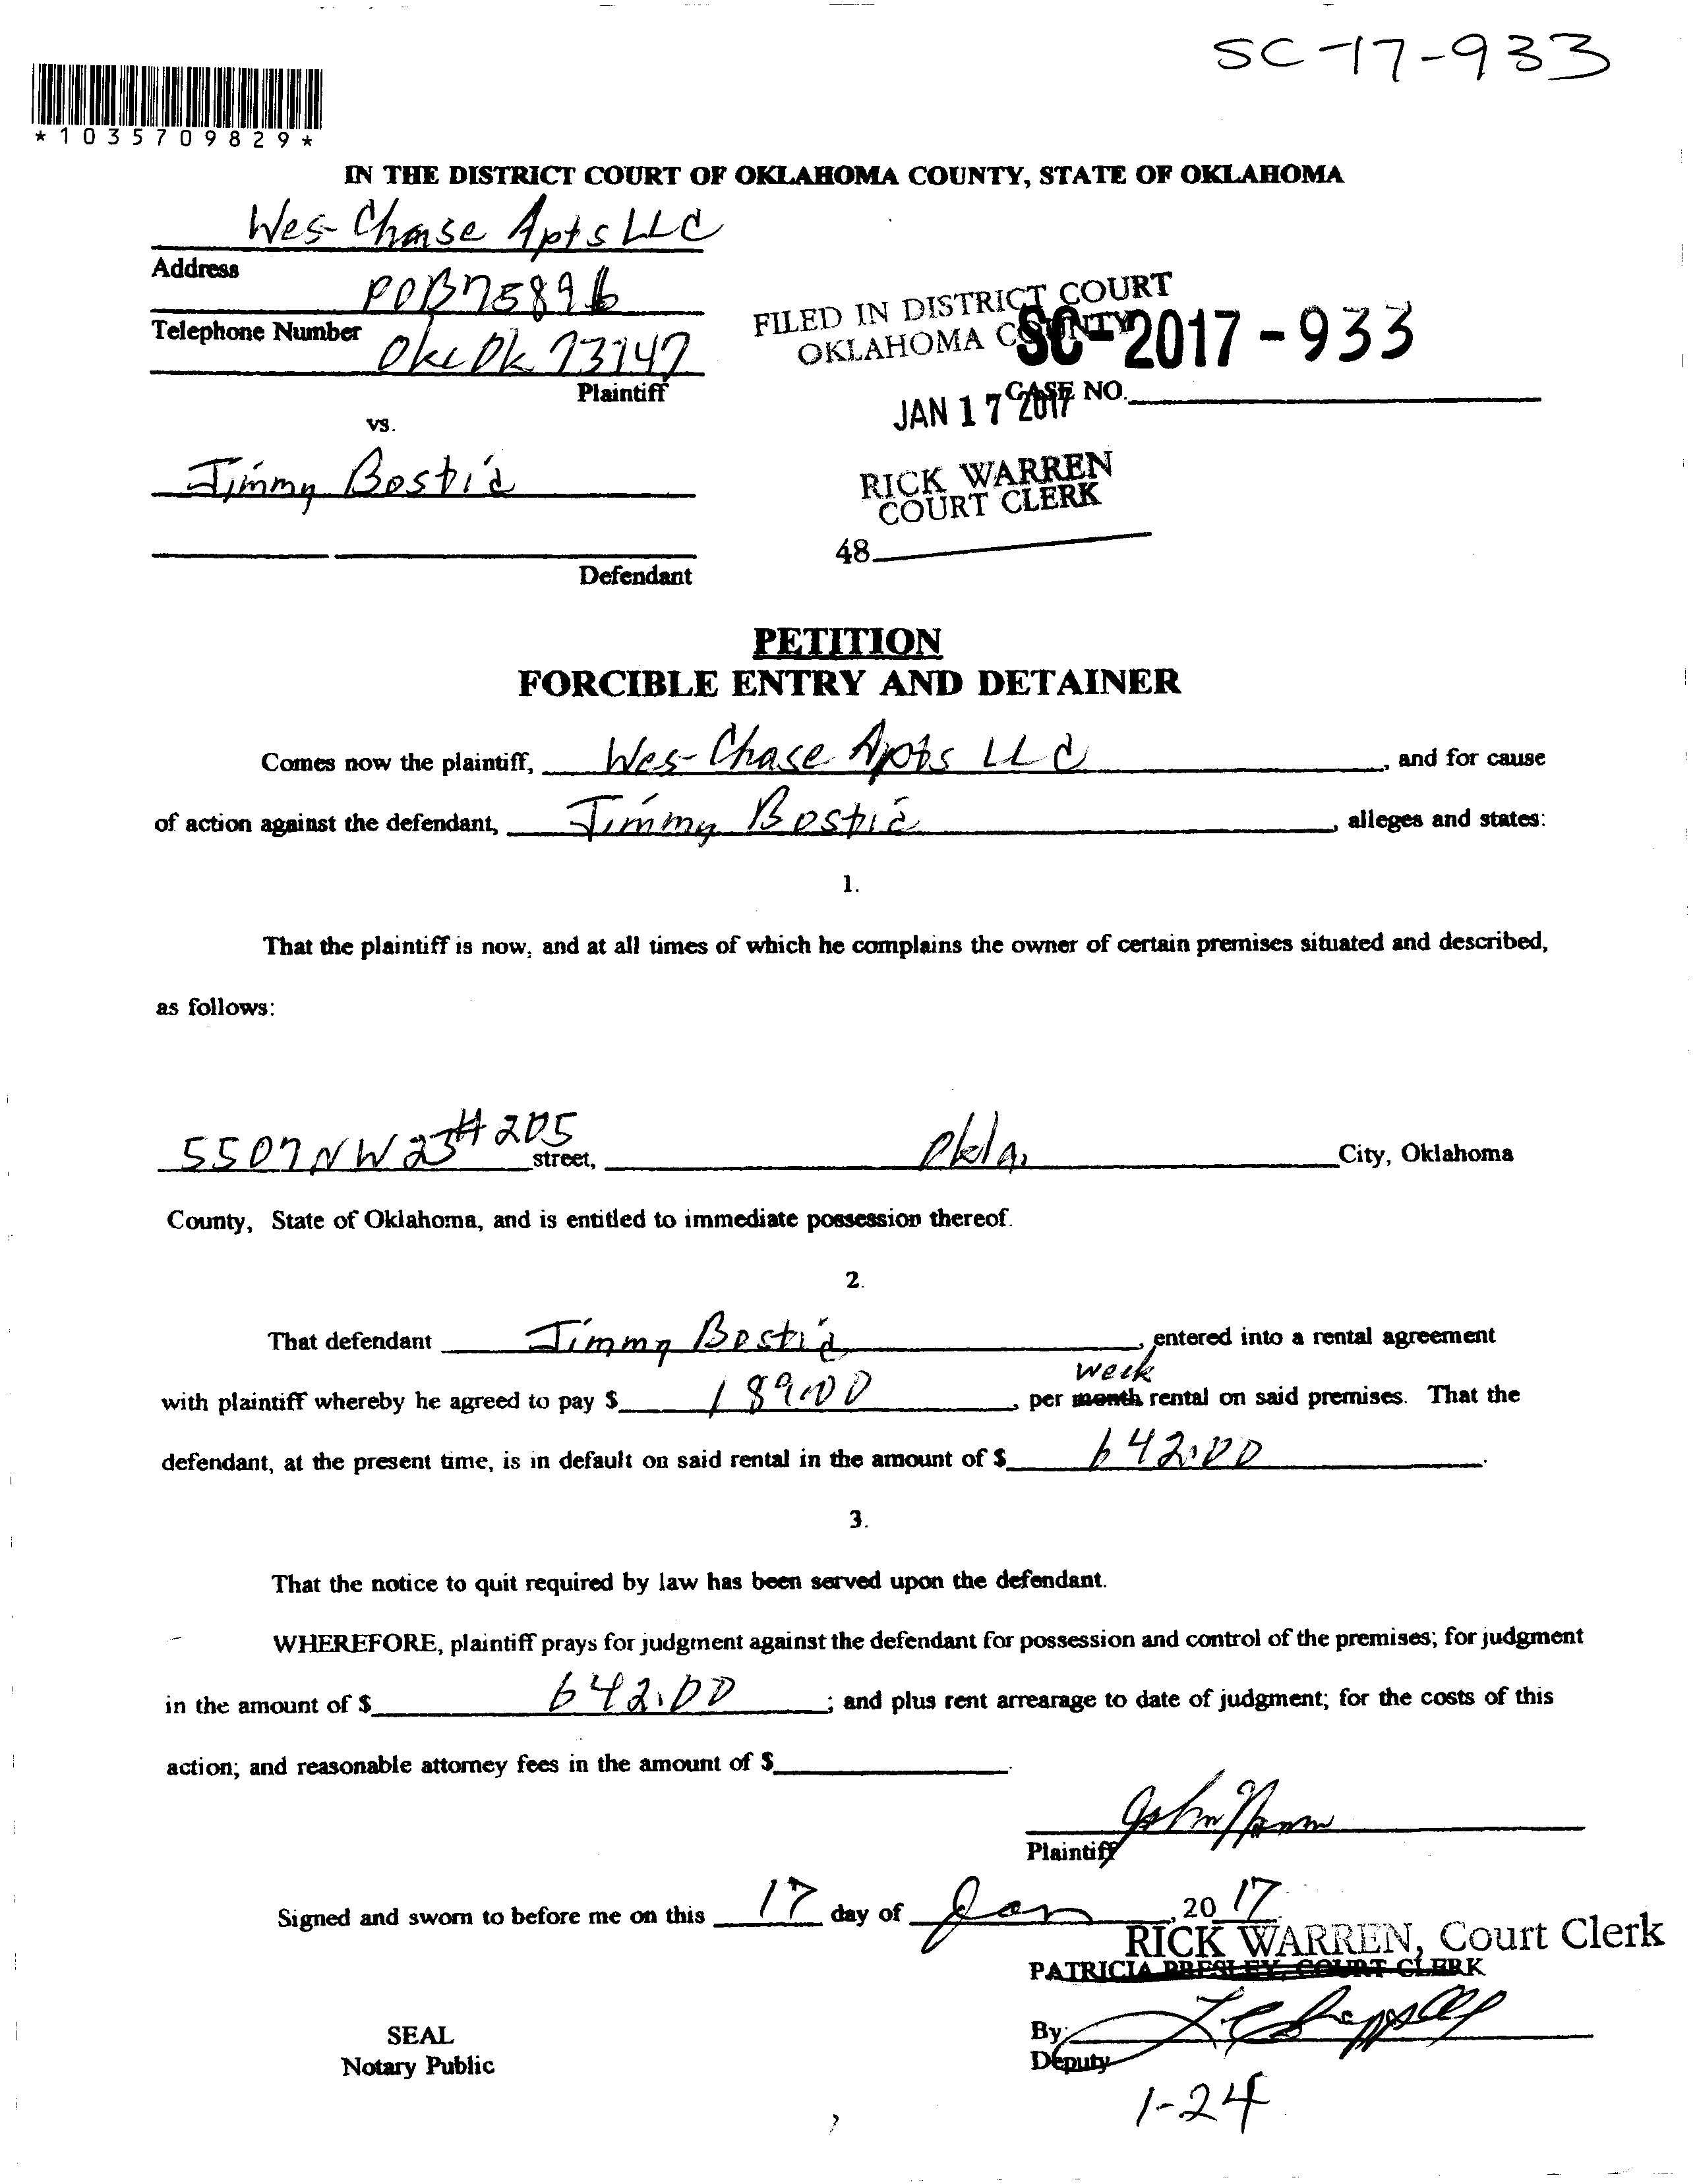 SC-17-933
*1035709829*
IN THE DISTRICT COURT OF OKLAHOMA COUNTY, STATE OF OKLAHOMA
Wes-Chase Apts LLC
Address
POB 75896
Telephone Number
Okc Ok 73147
Plaintiff
vs.
Jimmy Bostic
Defendant
FILED IN DISTRICT COURT
OKLAHOMA COUNTY
SC-2017-933
JAN 17 2017
CASE NO.
RICK WARREN
COURT CLERK
48
PETITION
FORCIBLE ENTRY AND DETAINER
Comes now the plaintiff, Wes-Chase Apts LLC, and for cause
of action against the defendant, Jimmy Bostic, alleges and states:
1.
That the plaintiff is now, and at all times of which he complains the owner of certain premises situated and described,
as follows:
5507 NW 23 #205 street, Okla. City, Oklahoma
County, State of Oklahoma, and is entitled to immediate possession thereof.
2.
That defendant Jimmy Bostic, entered into a rental agreement
week
with plaintiff whereby he agreed to pay $ 189.00, per month rental on said premises. That the
defendant, at the present time, is in default on said rental in the amount of $ 642.00.
3.
That the notice to quit required by law has been served upon the defendant.
WHEREFORE, plaintiff prays for judgment against the defendant for possession and control of the premises; for judgment
in the amount of $ 642.00; and plus rent arrearage to date of judgment; for the costs of this
action; and reasonable attorney fees in the amount of $.
John
Plaintiff
Signed and sworn to before me on this 17 day of Jan, 20 17
RICK WARREN, Court Clerk
PATRICIA PRESLEY, COURT CLERK
By:
Deputy
SEAL
Notary Public
1-24